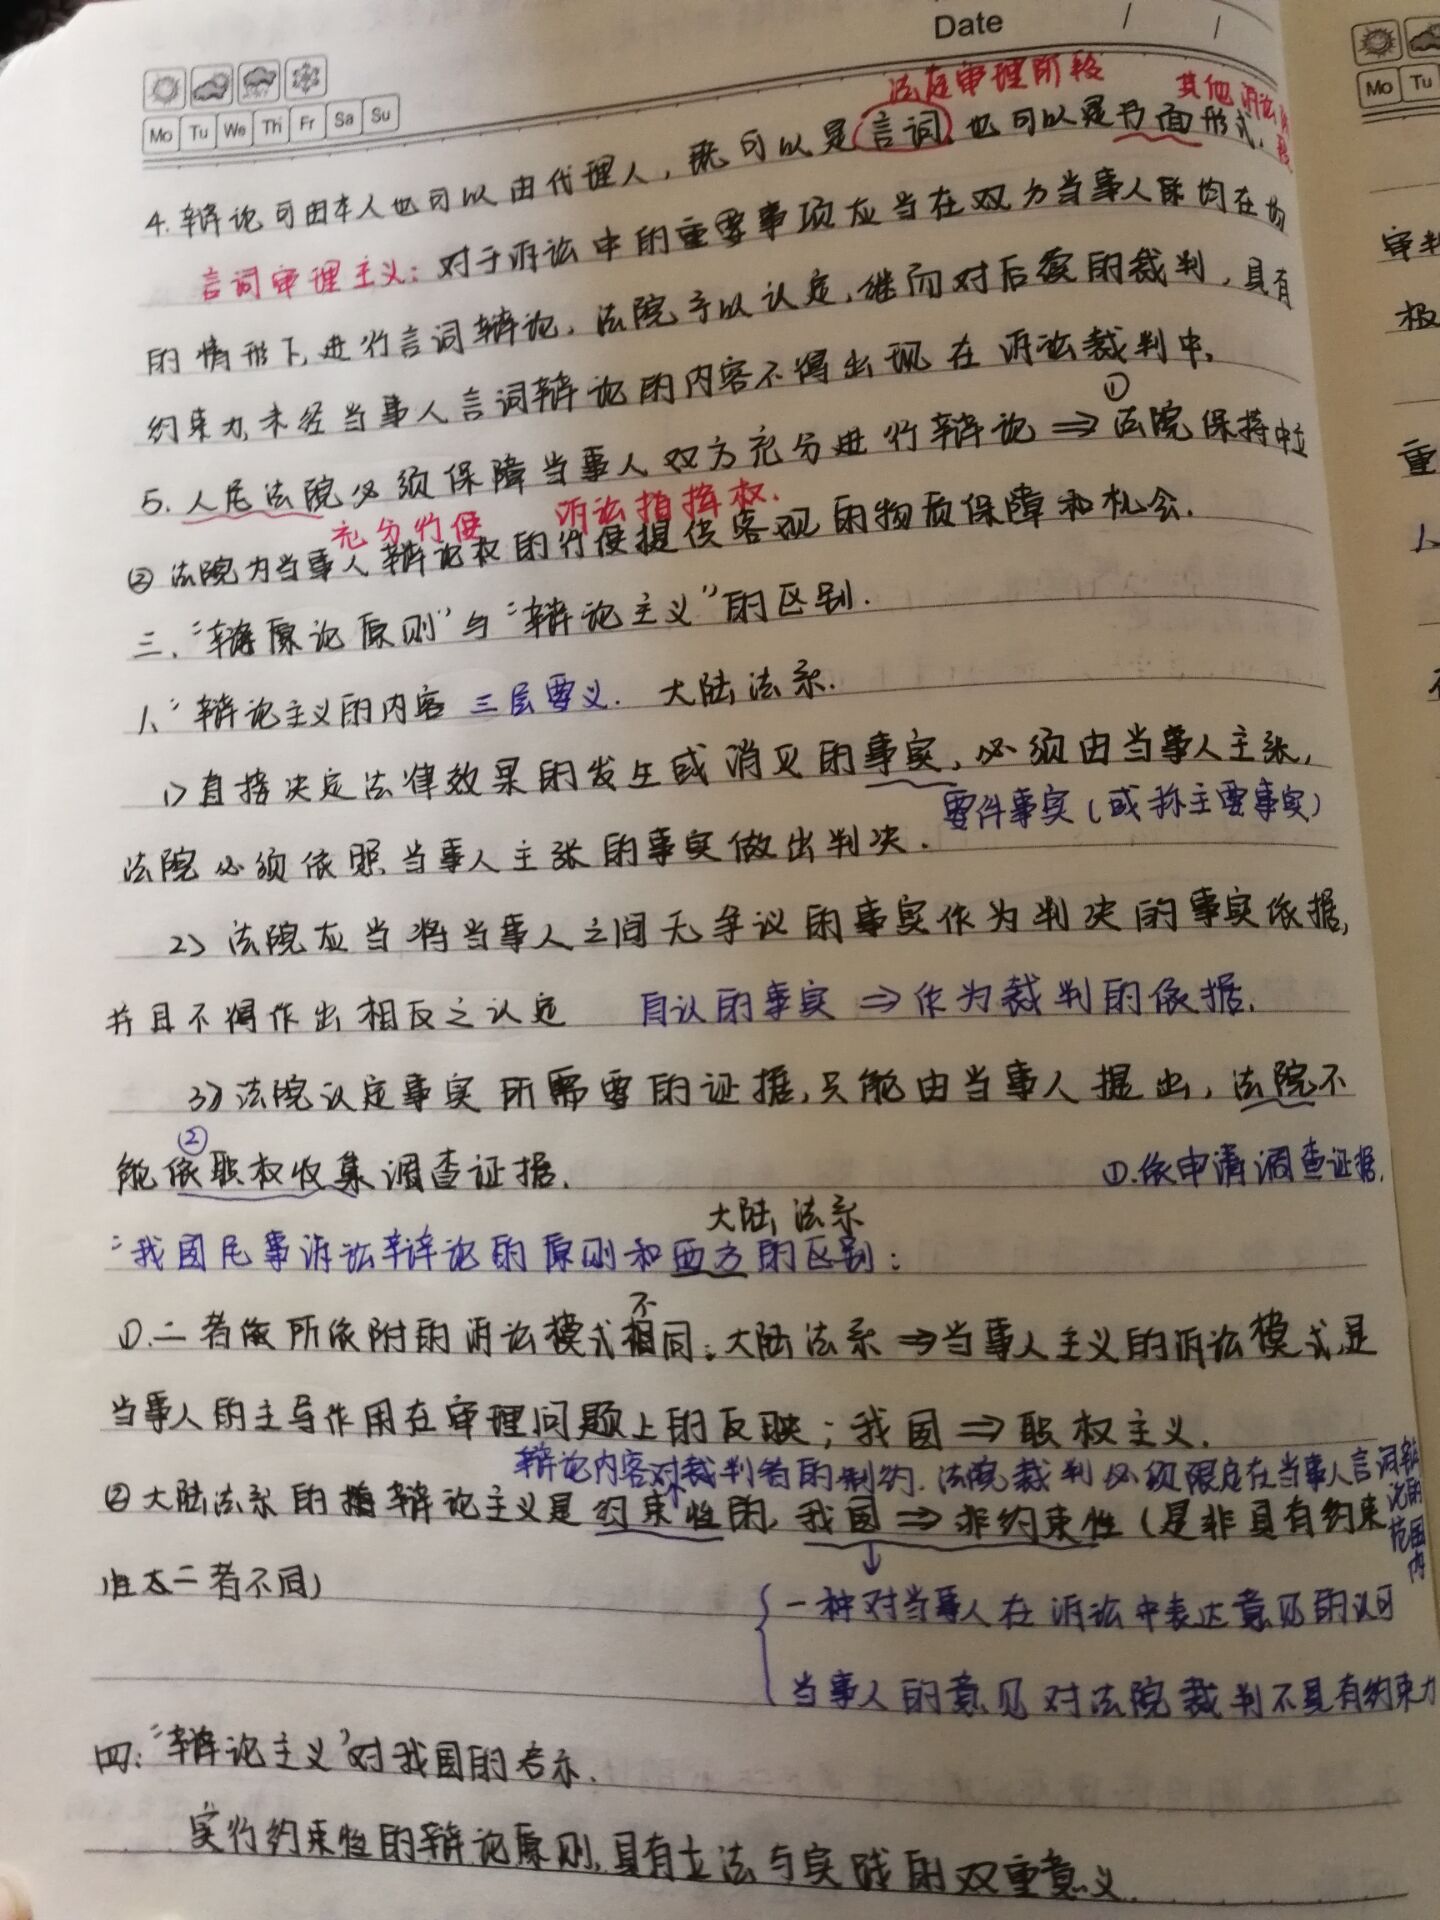 Date / /
Mo Tu We Th Fr Sa Su
Mo Tu
法庭审理阶段 其他诉讼阶段
4.辩论可由本人也可以由代理人，既可以是言词，也可以是书面形式，
言词审理主义：对于诉讼中的重要事项应当在双方当事人际均在场
的情形下,进行言词辩论，法院予以认定,继而对后续的裁判，具有
约束力,未经当事人言词辩论的内容不得出现在诉讼裁判中。
①
5. 人民法院必须保障当事人双方充分进行辩论⇒法院保持中立
充分行使 诉讼指挥权.
②法院为当事人辩论权的行使提供客观的物质保障和机会.
三、“辩原论原则”与“辩论主义”的区别.
1、“辩论主义的内容 三层要义. 大陆法系.
1)直接决定法律效果的发生或消灭的事实，必须由当事人主张,
要件事实(或称主要事实)
法院必须依照当事人主张的事实做出判决.
2)法院应当将当事人之间无争议的事实作为判决的事实依据,
并且不得作出相反之认定 自认的事实⇒作为裁判的依据.
3)法院认定事实所需要的证据,只能由当事人提出，法院不
②
能依职权收集调查证据. ①.依申请调查证据.
大陆法系
“我国民事诉讼辩论的原则和西方的区别：
不
①.二者做所依附的诉讼模式相同：大陆法系⇒当事人主义的诉讼模式,是
当事人的主导作用在审理问题上的反映；我国⇒职权主义.
辩论内容对裁判者的制约.法院裁判必须限定在当事人言词辩论的范围内
②大陆法系的辩论主义是约束性的,我国⇒非约束性(是非具有约束
性太二者不同)
一种对当事人在诉讼中表达意见的认可
当事人的意见对法院裁判不具有约束力
四：“辩论主义”对我国的启示.
实行约束性的辩论原则,具有立法与实践的双重意义.
审判
极
重
人